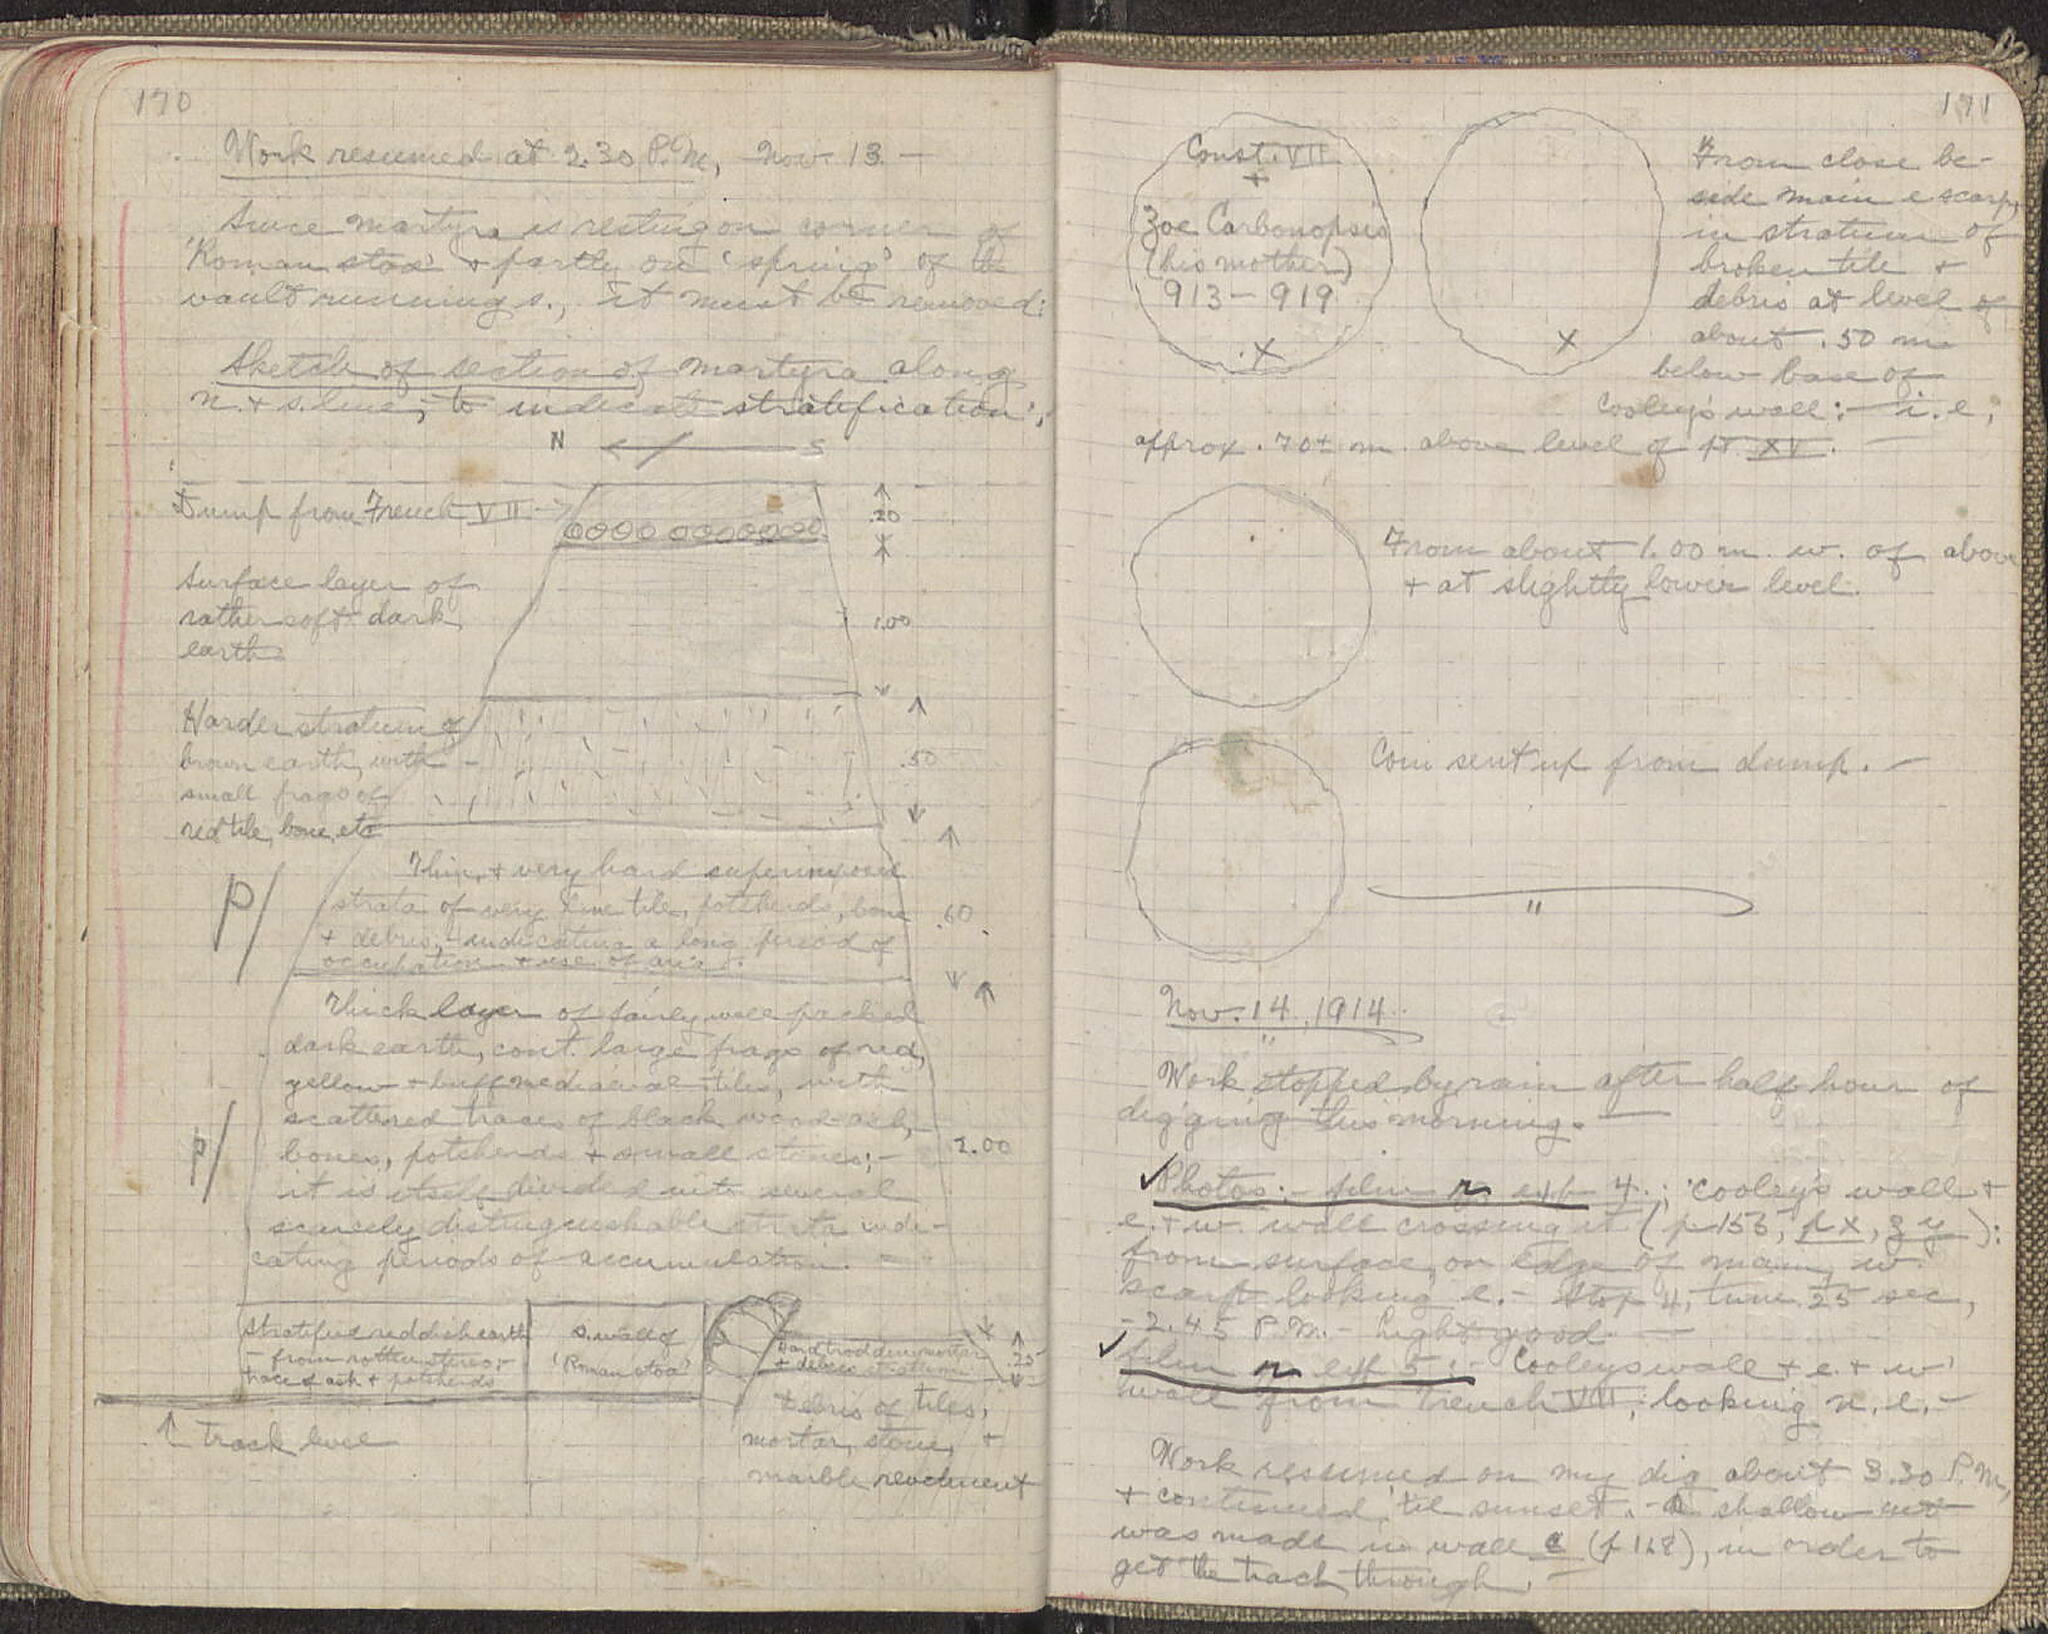 170
Work resumed at 2.30 P.M, Nov. 13 —
Since martyra is resting on corner of
'Roman stoa' + partly on 'spring' of the
vault running s., it must be removed:
Sketch of section of martyra along
n. + s. line, to indicate stratification:
N S
Dump from Trench VII
.20
Surface layer of
rather soft dark
earth
1.00
Harder stratum of
brown earth, with
small frags of
red tile, bone, etc
.50
p/
Thin, + very hard superimposed
strata of very fine tile, potsherds, bone
+ debris, - indicating a long period of
occupation + use of area.
.60
Thick layer of fairly well packed
dark earth, cont. large frags of red,
yellow + buff mediaeval tiles, with
scattered traces of black wood-ash,
bones, potsherds + small stones; —
it is itself divided into several
scarcely distinguishable strata indi-
cating periods of accumulation. —
p/
2.00
Stratified reddish earth
— from rotten stereo; —
trace of ash + potsherds
s. wall of
'Roman stoa'
Hard trod down mortar
+ debris stratum
.25
↑ track level
Debris of tiles,
mortar, stone, +
marble revetment
171
Const. VII
+
Zoe Carbonopsis
(his mother)
913 - 919
X
X
From close be-
side main e scarp,
in stratum of
broken tile +
debris at level of
about .50 m
below base of
Cooley's wall: — i.e,
approx .70± m. above level of pt XV. —
From about 1.00 m. w. of above
+ at slightly lower level.
Coin sent up from dump. —
"
Nov. 14, 1914.
Work stopped by rain after half hour of
digging this morning.
✓Photos: — film n exp 4.; Cooley's wall +
e. + w. wall crossing it (p 156, px, zy):
from surface, on edge of main w.
scarp looking e. — Stop 4, time 25 sec,
— 2.45 P.M. — light good —
✓film n exp 5: — Cooley's wall + e. + w
wall from Trench VII, looking n. e. —
Work resumed on my dig about 3.30 P.M,
+ continued til sunset. — A shallow cut
was made in wall c (p 128), in order to
get the track through. —